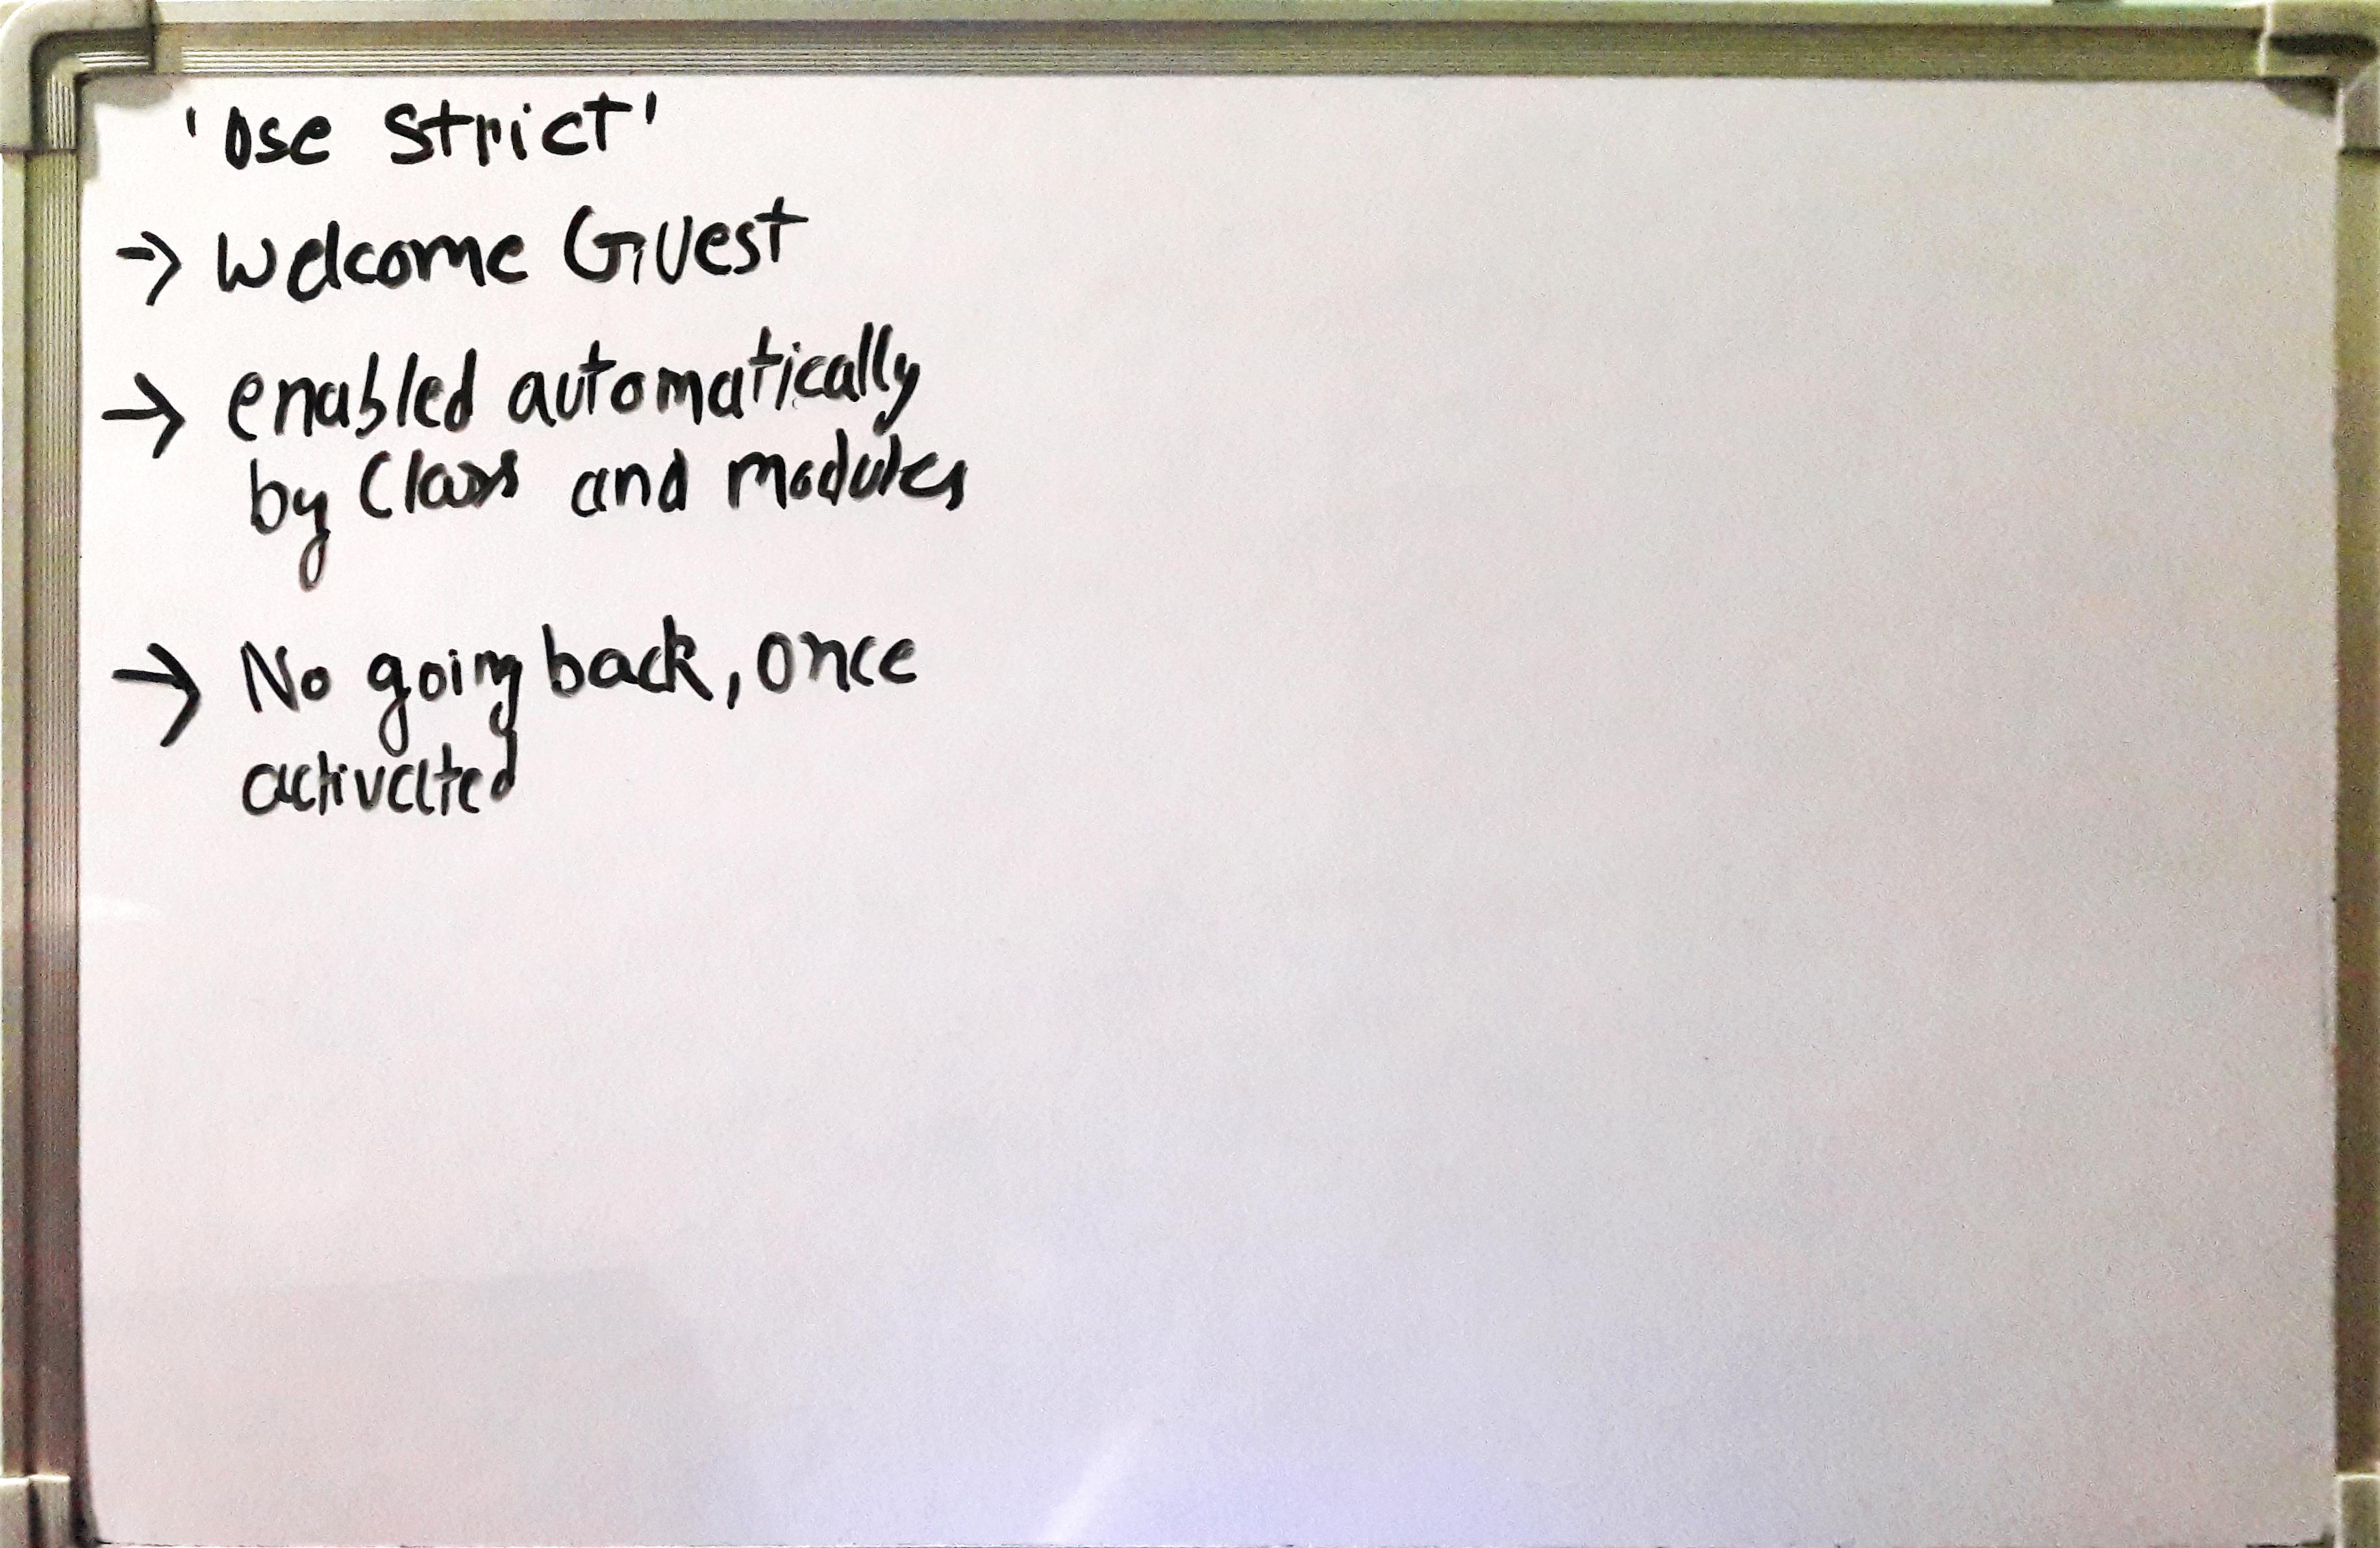 'Use strict'
→ Welcome Guest
→ enabled automatically
by Class and modules
→ No going back, once
activated